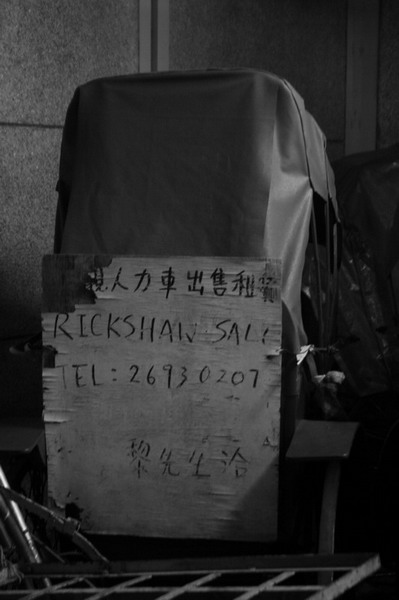 親人力車出售租務
RICKSHAW SALE
TEL: 26930207
黎先生洽